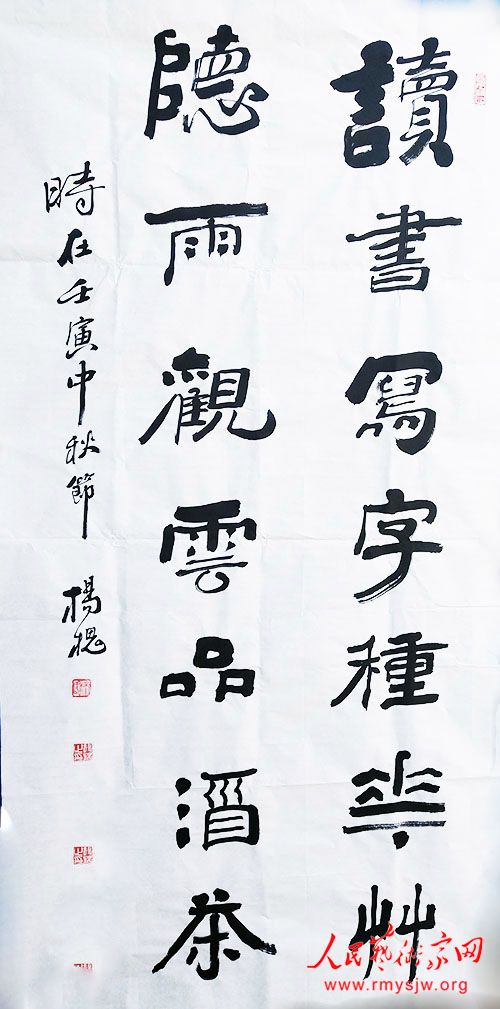 讀書寫字種華艸
聽雨觀雲品酒茶
時在壬寅中秋節 楊槐
人民藝術家网
www.rmysjw.org